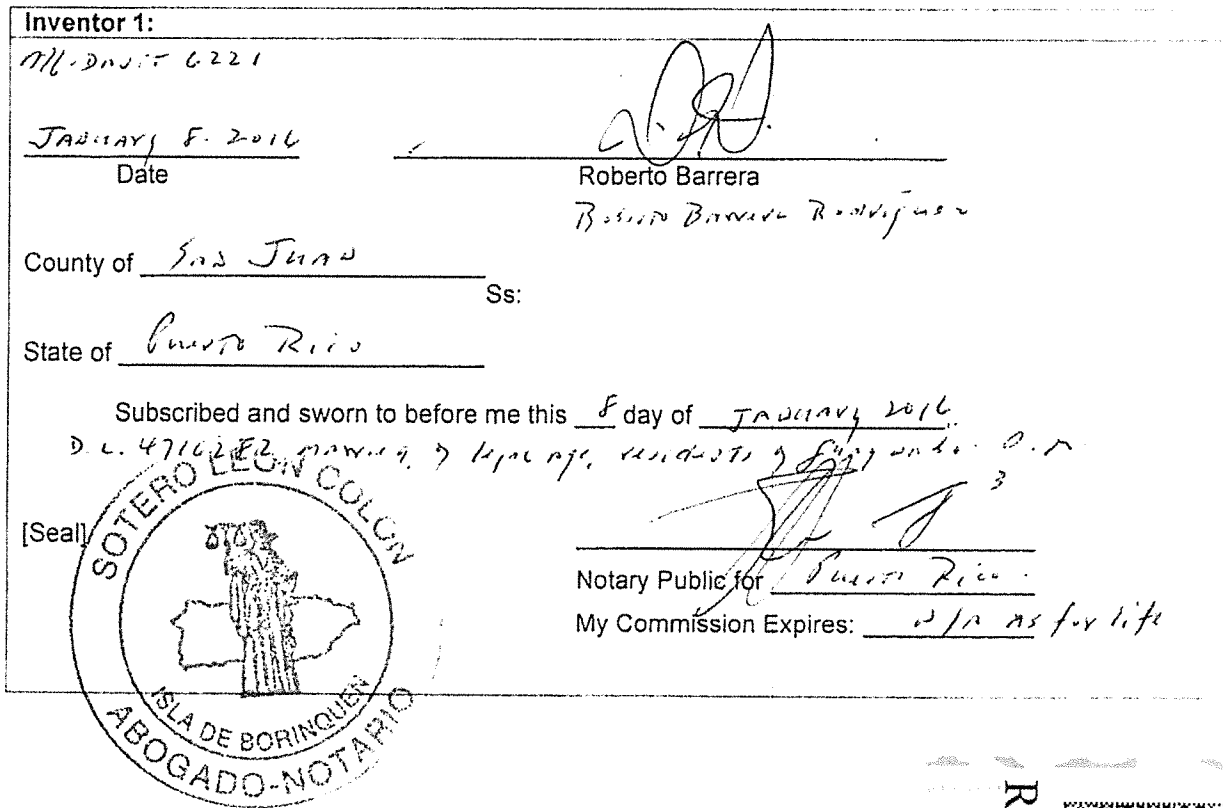 Inventor 1:
Affidavit 6221
January 8. 2016
Date
Roberto Barrera
Roberto Barrera Rodríguez
County of San Juan
Ss:
State of Puerto Rico
Subscribed and sworn to before me this 8 day of January 2016.
D.L. 4716282 married, of legal age, residents of
[Seal]
SOTERO LEON COLON
ISLA DE BORINQUEN
ABOGADO-NOTARIO
Notary Public for Puerto Rico.
My Commission Expires: N/A as for life
R